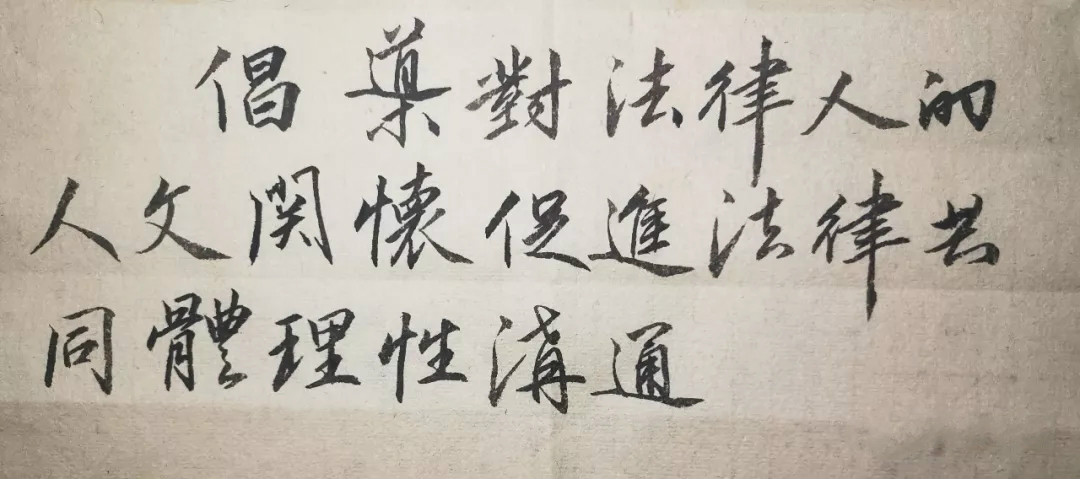 倡導對法律人的
人文関懷促進法律共
同體理性溝通